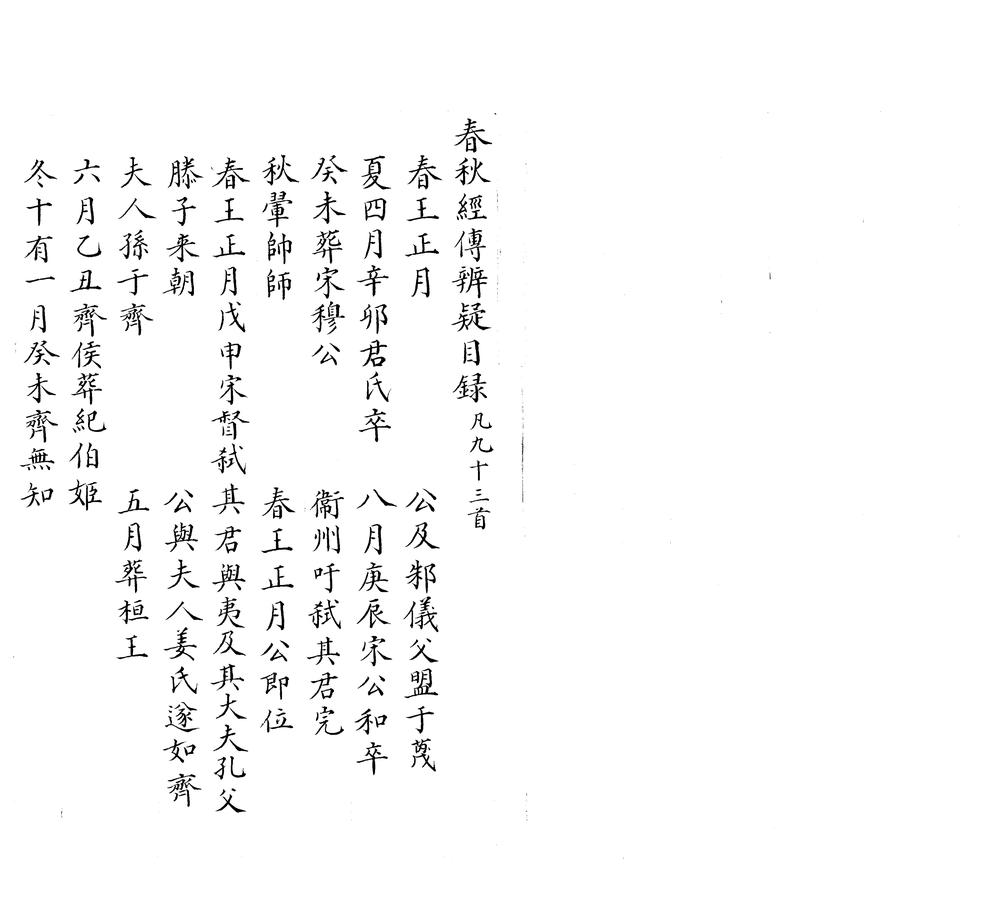 春秋經傳辨疑目録凡九十三首
春王正月　公及邾儀父盟于蔑
夏四月辛卯君氏卒　八月庚辰宋公和卒
癸未葬宋穆公　衞州吁弑其君完
秋翬帥師　春王正月公即位
春王正月戊申宋督弑其君與夷及其大夫孔父
滕子来朝　公與夫人姜氏遂如齊
夫人孫于齊　五月葬桓王
六月乙丑齊侯葬紀伯姬
冬十有一月癸未齊無知